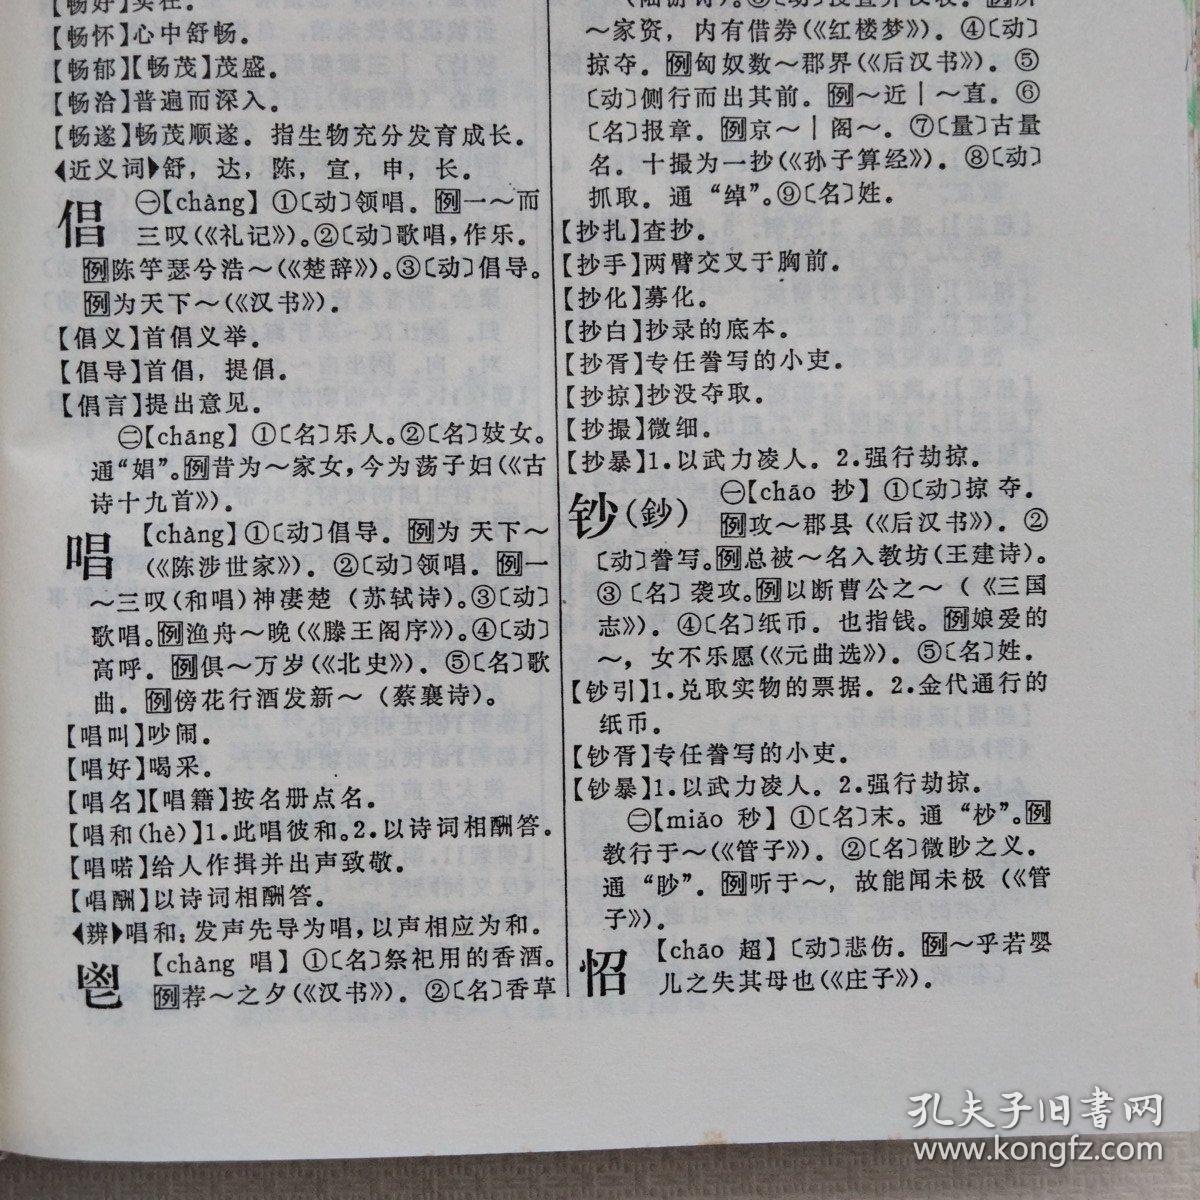 【畅好】实在。
【畅怀】心中舒畅。
【畅郁】【畅茂】茂盛。
【畅洽】普遍而深入。
【畅遂】畅茂顺遂。指生物充分发育成长。
〈近义词〉舒，达，陈，宣，申，长。
倡 ㊀【chàng】①〔动〕领唱。例一～而
三叹(《礼记》)。②〔动〕歌唱，作乐。
例陈竽瑟兮浩～(《楚辞》)。③〔动〕倡导。
例为天下～(《汉书》)。
【倡义】首倡义举。
【倡导】首倡，提倡。
【倡言】提出意见。
㊁【chāng】①〔名〕乐人。②〔名〕妓女。
通“娼”。例昔为～家女，今为荡子妇(《古
诗十九首》)。
唱 【chàng】①〔动〕倡导。例为天下～
(《陈涉世家》)。②〔动〕领唱。例一
～三叹(和唱)神凄楚(苏轼诗)。③〔动〕
歌唱。例渔舟～晚(《滕王阁序》)。④〔动〕
高呼。例俱～万岁(《北史》)。⑤〔名〕歌
曲。例傍花行酒发新～(蔡襄诗)。
【唱叫】吵闹。
【唱好】喝采。
【唱名】【唱籍】按名册点名。
【唱和(hè)】1.此唱彼和。2.以诗词相酬答。
【唱喏】给人作揖并出声致敬。
【唱酬】以诗词相酬答。
〈辨〉唱和：发声先导为唱，以声相应为和。
鬯 【chàng 唱】①〔名〕祭祀用的香酒。
例荐～之夕(《汉书》)。②〔名〕香草
～家资，内有借券(《红楼梦》)。④〔动〕
掠夺。例匈奴数～郡界(《后汉书》)。⑤
〔动〕侧行而出其前。例～近｜～直。⑥
〔名〕报章。例京～｜阁～。⑦〔量〕古量
名。十撮为一抄(《孙子算经》)。⑧〔动〕
抓取。通“绰”。⑨〔名〕姓。
【抄扎】查抄。
【抄手】两臂交叉于胸前。
【抄化】募化。
【抄白】抄录的底本。
【抄胥】专任誊写的小吏。
【抄掠】抄没夺取。
【抄撮】微细。
【抄暴】1.以武力凌人。2.强行劫掠。
钞(鈔) ㊀【chāo 抄】①〔动〕掠夺。
例攻～郡县(《后汉书》)。②
〔动〕誊写。例总被～名入教坊(王建诗)。
③〔名〕袭攻。例以断曹公之～(《三国
志》)。④〔名〕纸币。也指钱。例娘爱的
～，女不乐愿(《元曲选》)。⑤〔名〕姓。
【钞引】1.兑取实物的票据。2.金代通行的
纸币。
【钞胥】专任誊写的小吏。
【钞暴】1.以武力凌人。2.强行劫掠。
㊁【miǎo 秒】①〔名〕末。通“杪”。例
教行于～(《管子》)。②〔名〕微眇之义。
通“眇”。例听于～，故能闻未极(《管
子》)。
怊 【chāo 超】〔动〕悲伤。例～乎若婴
儿之失其母也(《庄子》)。
孔夫子旧书网
www.kongfz.com